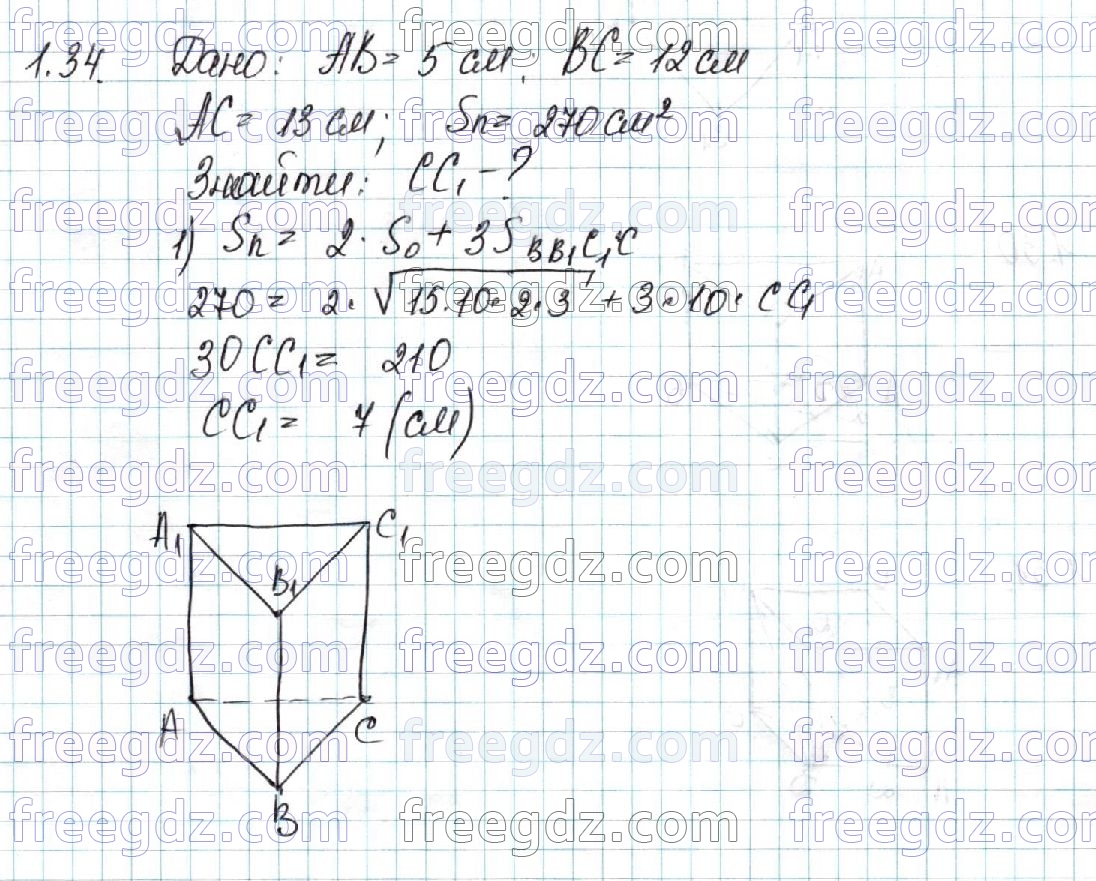 1.34. Дано: AB = 5 см; BC = 12 см
AC = 13 см; Sп = 270 см²
Знайти: CC₁ - ?
1) Sп = 2 · S₀ + 3S BB₁C₁C
270 = 2 · √15·10·2·3 + 3·10· CC₁
30CC₁ = 210
CC₁ = 7 (см)
A₁ C₁
B₁
A C
B
freegdz.com